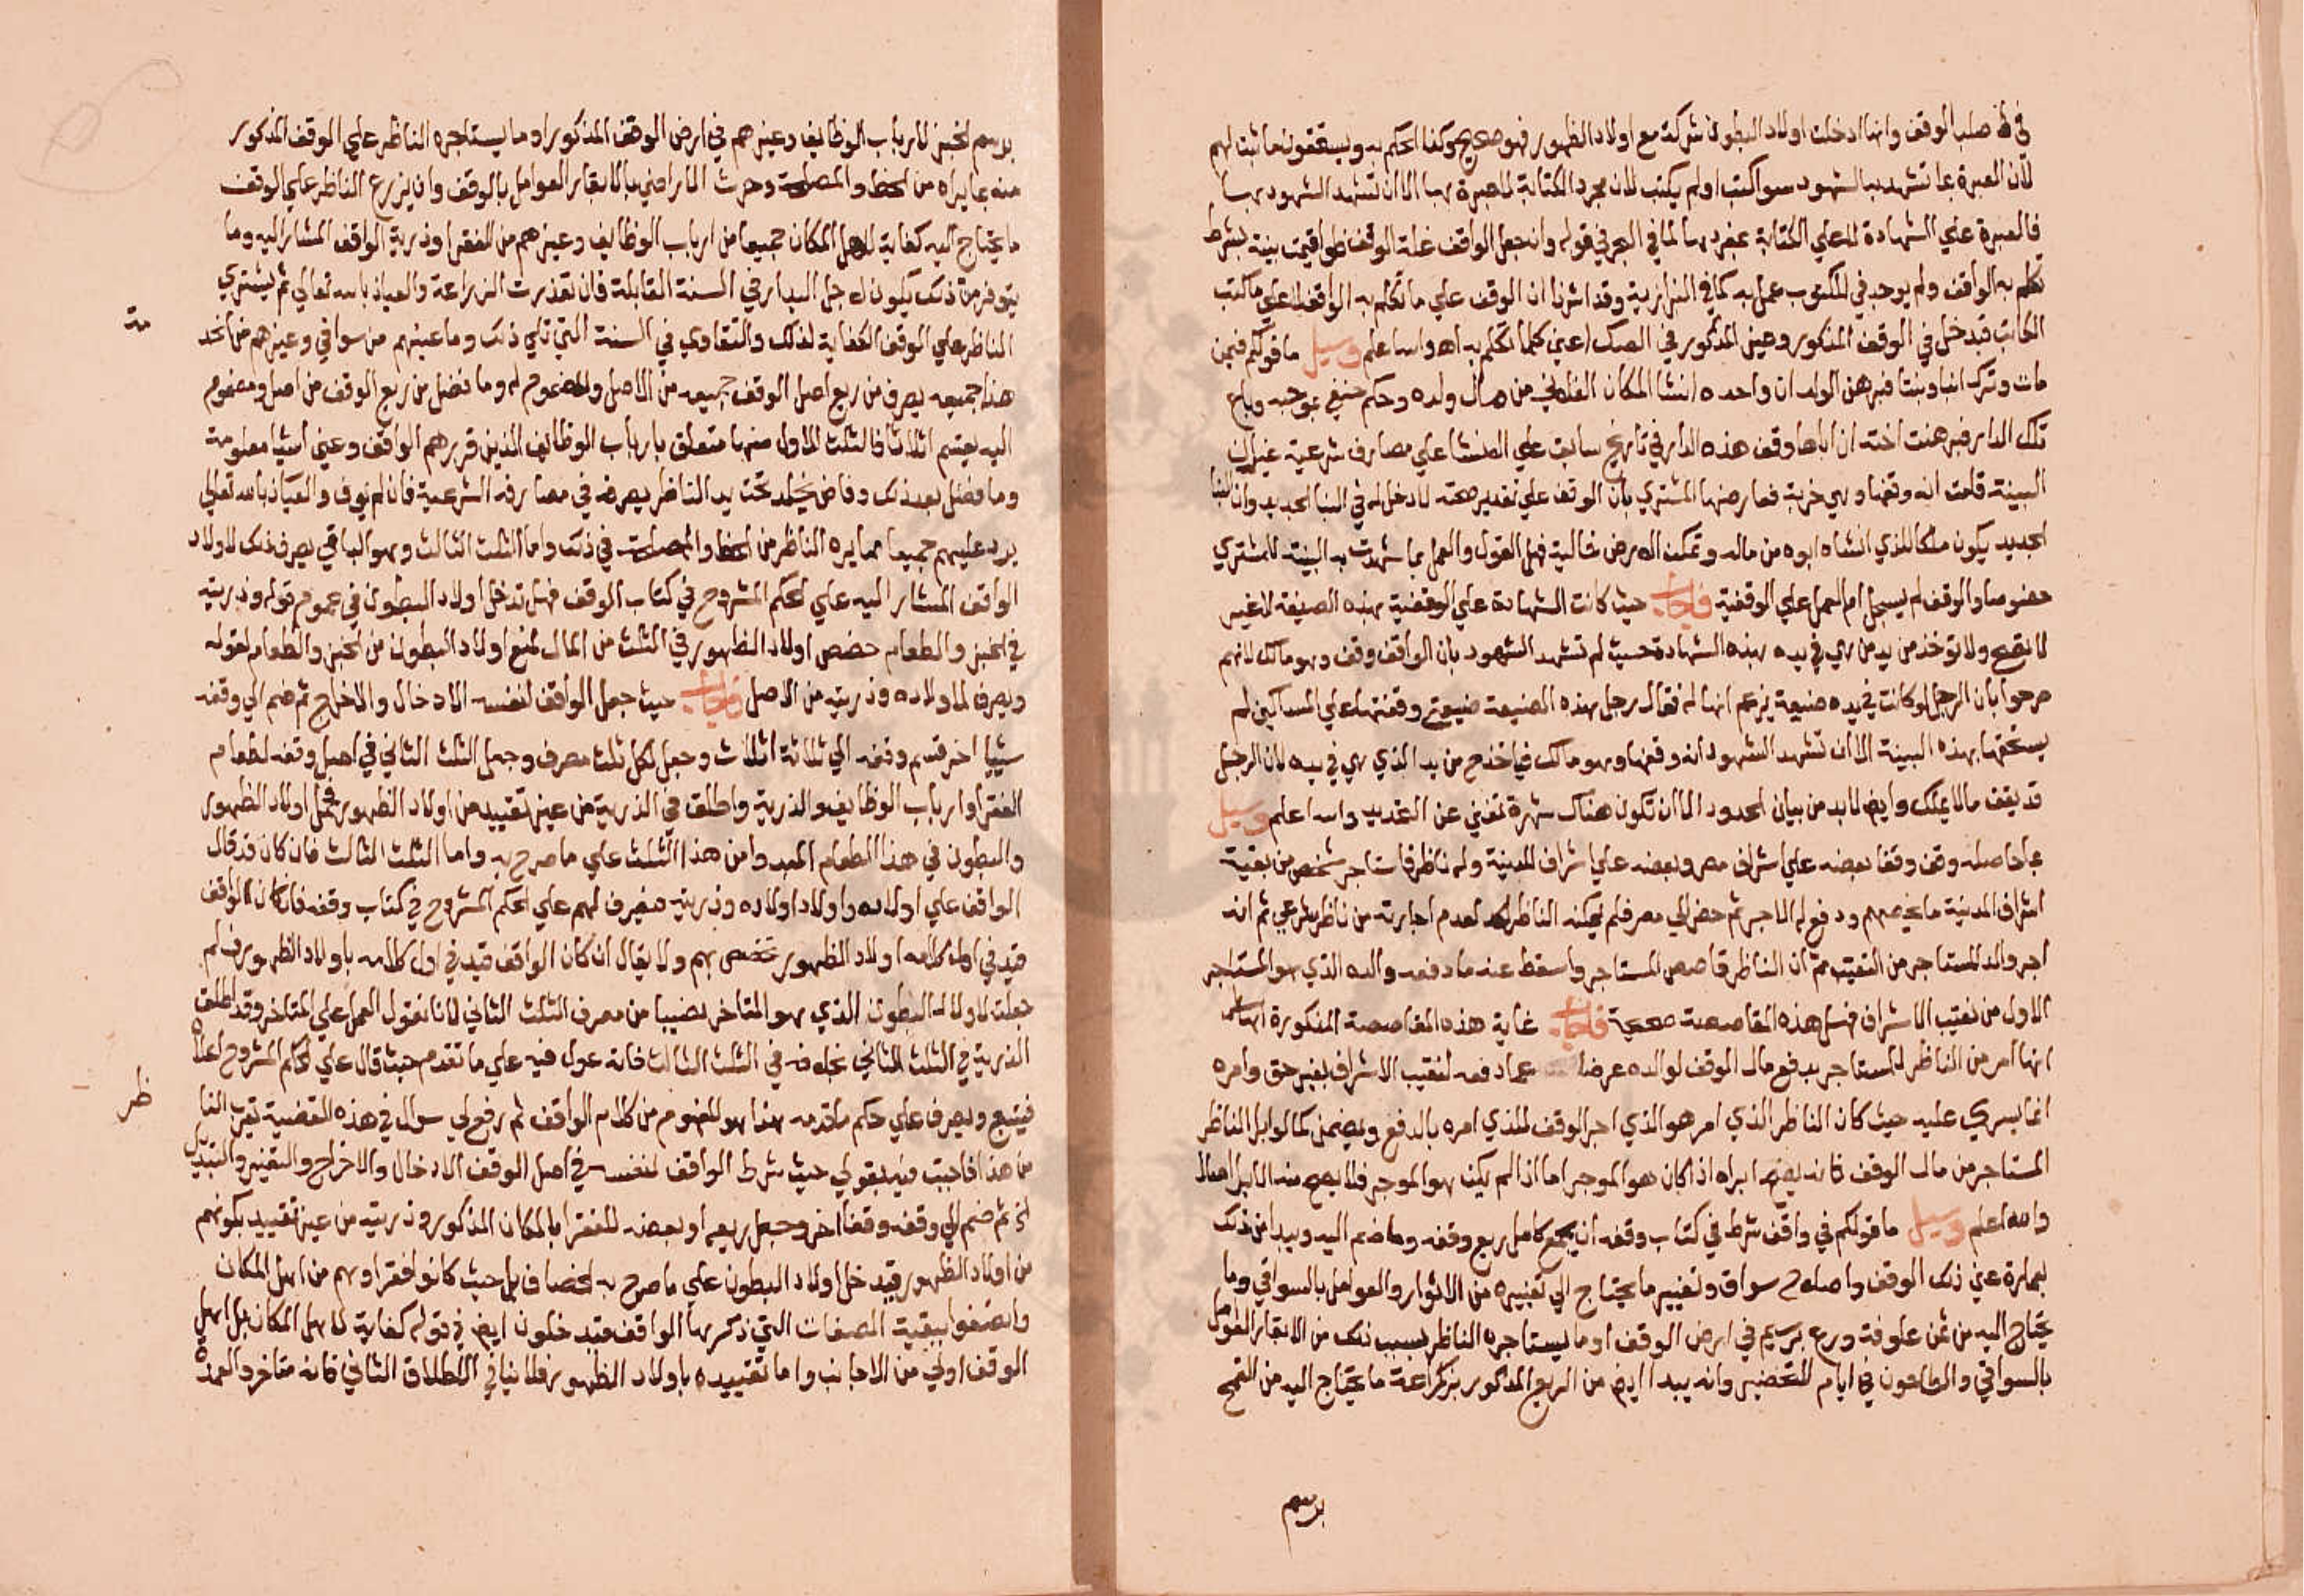 في صلب الوقف وانها ادخلت اولاد البطون شركة مع اولاد الظهور فهو صحيح وكذا الحكم به ويستحقون ما ثبت لهم
لان العبرة بما تشهد به الشهود سوا كتب او لم يكتب لان مجرد الكتابة لا عبرة بها الا ان تشهد الشهود بها
فالعبرة علي الشهادة لا علي الكتابة بمفردها لما في البحر في قوله وان جعل الواقف غلة الوقف لو اقيمت بينة بشرط
تكلم به الواقف ولم يوجد في المكتوب عمل به كما في البزازية وقد اشرنا ان الوقف علي ما تكلم به الواقف لا علي ما كتب
الكاتب فيدخل في الوقف المذكور وغير المذكور في الصك اعني كلما تكلم به اه والله اعلم وسيل ما قولكم فيمن
مات وترك ابنا وبنتا فبرهن الولد ان والده انشا المكان الفلاني من مال ولده وحكم حنفي بموجبه وباع
تلك الدار فبرهنت اخته ان اباها وقف هذه الدار في تاريخ سابق علي المنشا علي مصارف شرعية غير ان
البينة قامت انه وقفها وهي خربة فعارضها المشتري بان الوقف علي تقدير صحته لا دخل له في البنا الجديد وان البنا
الجديد يكون ملكا للذي انشاه ابوه من ماله وتمكث الارض خالية فهل القول والعمل بما شهدت به البينة للمشتري
خصوصا والوقف لم يسجل ام العمل علي الوقفية فاجاب حيث كانت الشهادة علي الوقفية بهذه الصيغة لا غير
لا تصح ولا توخذ من يد من هي في يده بهذه الشهادة حيث لم تشهد الشهود بان الواقف وقف وهو مالك لانهم
صرحوا بان الرجل لو كانت في يده ضيعة يزعم انها له فقال رجل هذه الضيعة ضيعتي وقفتها علي المساكين لم
يستحقها بهذه البينة الا ان تشهد الشهود انه وقفها وهو مالك فياخذها من يد الذي هي في يده لان الرجل
قد يقف مالا يملك وايضا لابد من بيان الحدود الا ان تكون هناك شهرة تغني عن التحديد والله اعلم وسيل
بما حاصله وقف وقفا بعضه علي اشراف مصر وبعضه علي اشراف المدينة وله ناظر فاستاجر شخص من بقية
اشراف المدينة ما يخصهم ودفع له الاجر ثم حضر الي مصر فلم يمكنه الناظر لعدم اجارته من ناظر شرعي ثم انه
اجر والد المستاجر من النقيب ثم ان الناظر قاصص المستاجر واسقط عنه ما دفعه والده الذي هو المستاجر
الاول من نقيب الاشراف فهل هذه المقاصصة صحيحة فاجاب غاية هذه المقاصصة المذكورة
انها امر من الناظر للمستاجر بدفع مال الوقف لوالده عوضا عما دفعه لنقيب الاشراف بغير حق وامره
انما يسري عليه حيث كان الناظر الذي امر هو الذي اجر الوقف للذي امره بالدفع ويضمن كما لو ابرا الناظر
المستاجر من مال الوقف فانه يصح ابراه اذا كان هو الموجر اما اذا لم يكن هو الموجر فلا يصح منه الابرا اصلا
والله اعلم وسيل ما قولكم في واقف شرط في كتاب وقفه ان يجمع كامل ريع وقفه وما ضم اليه ويبدا من ذلك
بعمارة عين ذلك الوقف واصلاح سواق وتغيير ما يحتاج الي تغييره من الاثوار والعوامل بالسواقي وما
يحتاج اليه من ثمن علوفة وزرع برسيم في ارض الوقف او ما يستاجره الناظر بسبب ذلك من الابقار العوامل
بالسواقي والطاحون في ايام التخضير وانه يبدا ايضا من الريع المذكور بزراعة ما يحتاج اليه من القمح
برسم
برسم الخبز لارباب الوظايف وغيرهم في ارض الوقف المذكور او ما يستاجره الناظر علي الوقف المذكور
منه بما يراه من الحظ والمصلحة وحرث الاراضي بالابقار العوامل بالوقف وان يزرع الناظر علي الوقف
ما يحتاج اليه كفاية لاهل المكان جميعا من ارباب الوظايف وغيرهم من الفقرا وذرية الواقف المشار اليه وما
يتوفر من ذلك يكون لاجل البدار في السنة القابلة فان تعذرت الزراعة والعياذ بالله تعالي ثم يشتري
الناظر علي الوقف الكفاية لذلك والتقاوي في السنة التي تلي ذلك وما عينهم من سواقي وغيرهم من الخد
مة
هذا جميعه يصرف من ريع اصل الوقف جميعه من الاصل والمضموم له وما فضل من ريع الوقف من اصل ومضموم
اليه يقسم اثلاثا فالثلث الاول منها متعلق بارباب الوظايف الذين قررهم الواقف وعين اشيا معلومة
وما فضل بعد ذلك وفاض يخلد تحت يد الناظر يصرفه في مصارفه الشرعية فان لم يوف والعياذ بالله تعالي
يرد عليهم جميعا مما يره الناظر من الحظ والمصلحة في ذلك واما الثلث الثالث وهو الباقي يصرف ذلك لاولاد
الواقف المشار اليه علي الحكم المشروح في كتاب الوقف فهل تدخل اولاد البطون في عموم قوله وذريته
في الخبز والطعام خصص اولاد الظهور في الثلث من المال تمنع اولاد البطون من الخبز والطعام لقوله
ويصرف لاولاده وذريته من الاصل فاجاب حيث جعل الواقف لنفسه الادخال والاخراج ثم ضم الي وقفه
شيا اخر قسم وقفه الي ثلاثة اثلاث وجعل لكل ثلث مصرف وجعل الثلث الثاني في اصل وقفه لطعام
الفقرا وارباب الوظايف والذرية واطلق في الذرية من غير تقييد من اولاد الظهور فيحمل اولاد الظهور
والبطون في هذا الطعام المعد وا من هذا الثلث علي ما صرح به واما الثلث الثالث فان كان قد قال
الواقف علي اولاده واولاد اولاده وذريته فيصرف لهم علي الحكم المشروح في كتاب وقفه فان كان الواقف
قيد في اول كلامه اولاد الظهور تخص بهم ولا يقال ان كان الواقف قيد في اول كلامه باولاد الظهور فلم
جعلت لاولاد البطون الذي هو المتاخر نصيبا من مصرف الثلث الثاني لانا نقول العمل علي المتاخر وقد اطلق
الذرية في الثلث الثاني بخلافه في الثلث الثالث فانه عول فيه علي ما تقدم حيث قال علي الحكم المشروح اعلاه
فيتبع ويصرف علي حكم ما قدمه هذا هو المفهوم من كلام الواقف ثم رفع لي سوال في هذه القضية يقرب النا
ظر
من هذا فاجبت فيه بقولي حيث شرط الواقف لنفسه في اصل الوقف الادخال والاخراج والتغيير والتبديل
ثم ضم الي وقفه وقفا اخر وجعل ريعه او بعضه للفقرا بالمكان المذكور وذريته من غير تقييد بكونهم
من اولاد الظهور فيدخل اولاد البطون علي ما صرح به الخصاف بل حيث كانوا فقرا وهم من اهل المكان
واتصفوا ببقية الصفات التي ذكرها الواقف فيدخلون ايضا في قوله كفاية لاهل المكان بل اهل
الوقف اولي من الاجانب واما تقييده باولاد الظهور فلا ينافي الاطلاق الثاني فانه متاخر والعمدة